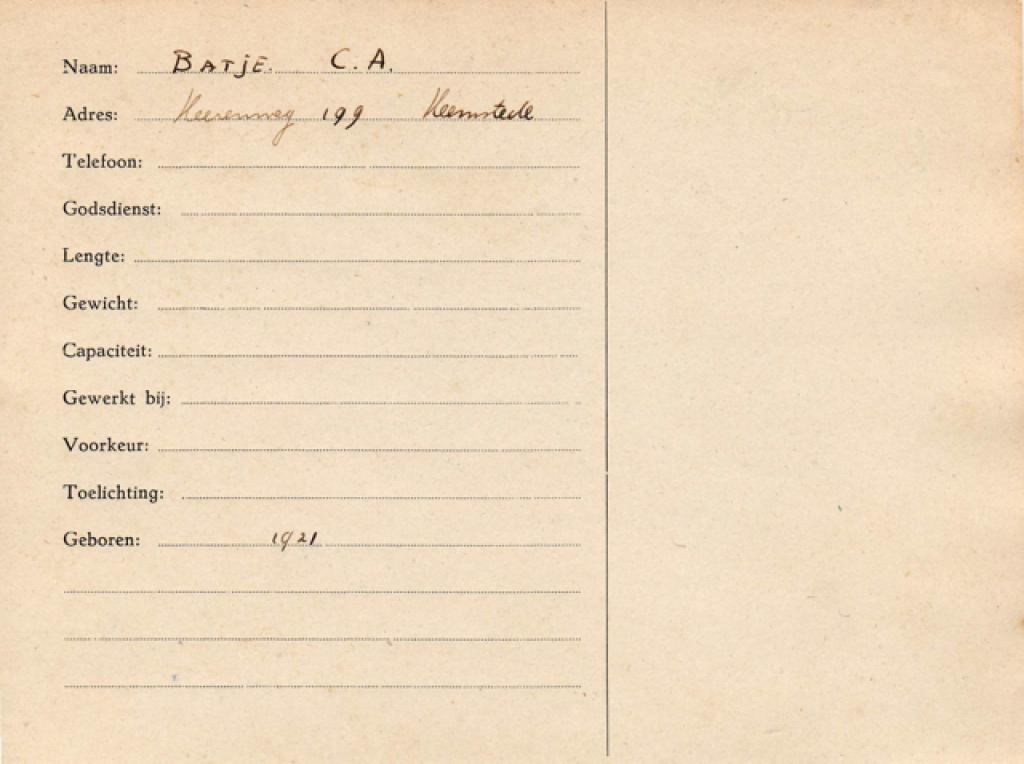 Naam: BATJE. C. A.
Adres: Heerenweg 199 Heemstede
Telefoon:
Godsdienst:
Lengte:
Gewicht:
Capaciteit:
Gewerkt bij:
Voorkeur:
Toelichting:
Geboren: 1921